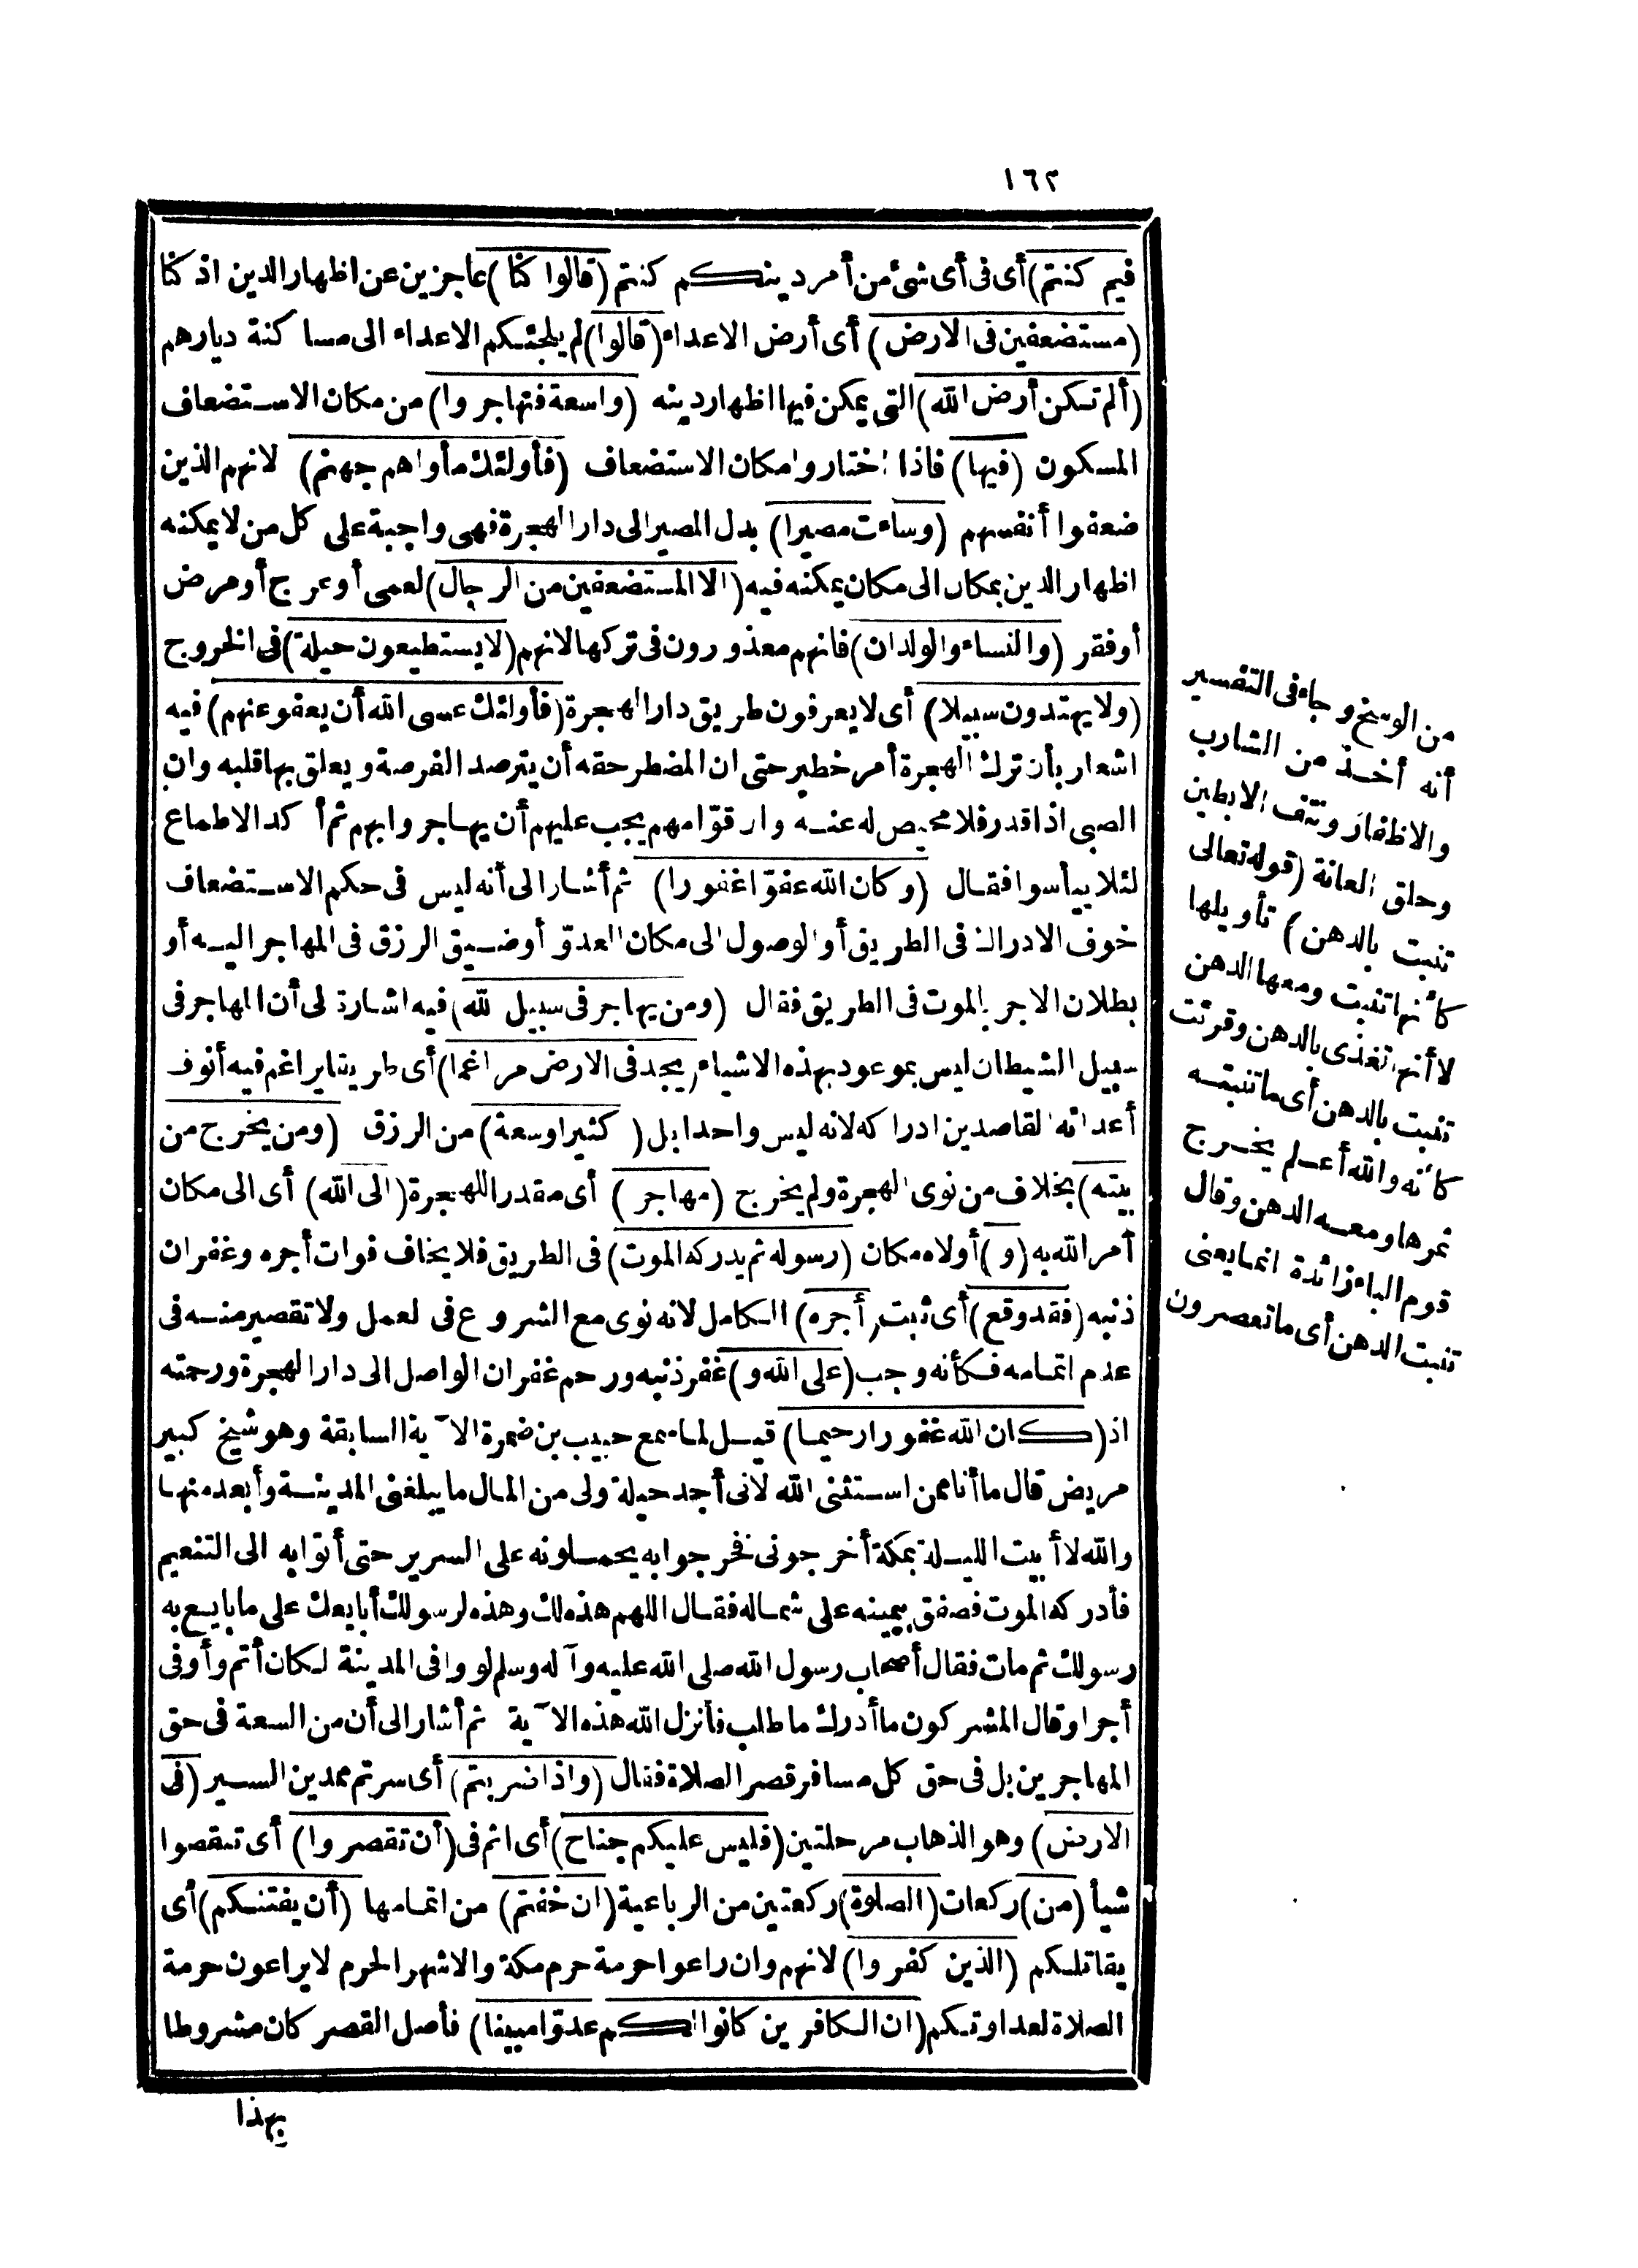 ١٦٢
فيم كنتم) أى فى أى شئ من أمر دينكم كنتم (قالوا كنا) عاجزين عن اظهار الدين اذ كنا
(مستضعفين فى الارض) أى أرض الاعداء (قالوا) لم يلجئكم الاعداء الى مساكنة ديارهم
(ألم تكن أرض الله) التى يمكن فيها اظهار دينه (واسعة فتهاجروا) من مكان الاستضعاف
المسكون (فيها) فاذا اختاروا مكان الاستضعاف (فأولئك مأواهم جهنم) لانهم الذين
ضعفوا أنفسهم (وساءت مصيرا) بدل المصير الى دار الهجرة فهى واجبة على كل من لا يمكنه
اظهار الدين بمكان الى مكان يمكنه فيه (الا المستضعفين من الرجال) لعمى أو عرج أو مرض
أو فقر (والنساء والولدان) فانهم معذورون فى تركها لانهم (لا يستطيعون حيلة) فى الخروج
(ولا يهتدون سبيلا) أى لا يعرفون طريق دار الهجرة (فأولئك عسى الله أن يعفو عنهم) فيه
اشعار بأن ترك الهجرة أمر خطير حتى ان المضطر حقه أن يترصد الفرصة ويعلق بها قلبه وان
الصبى اذا قدر فلا محيص له عنه وان قوّامهم يجب عليهم أن يهاجروا بهم ثم أكد الاطماع
لئلا ييأسوا فقال (وكان الله عفوّا غفورا) ثم أشار الى أنه ليس فى حكم الاستضعاف
خوف الادراك فى الطريق أو الوصول الى مكان العدوّ أو ضيق الرزق فى المهاجر اليه أو
بطلان الاجر بالموت فى الطريق فقال (ومن يهاجر فى سبيل لله) فيه اشارة لى أن المهاجر فى
سبيل الشيطان ليس بموعود بهذه الاشياء (يجد فى الارض مراغما) أى طريقا يراغم فيه أنوف
أعدائه القاصدين ادراكه لانه ليس واحدا بل (كثيرا وسعة) من الرزق (ومن يخرج من
بيته) بخلاف من نوى الهجرة ولم يخرج (مهاجر) أى مقدرا للهجرة (الى الله) أى الى مكان
أمر الله به (و) أولاه مكان (رسوله ثم يدركه الموت) فى الطريق فلا يخاف فوات أجره وغفران
ذنبه (فقد وقع) أى ثبت (أجره) الكامل لانه نوى مع الشروع فى لعمل ولا تقصير منه فى
عدم اتمامه فكأنه وجب (على الله و) غفر ذنبه ورحم غفران الواصل الى دار الهجرة ورحمته
اذ (كان الله غفورا رحيما) قيل لما سمع حبيب بن ضمرة الآية السابقة وهو شيخ كبير
مريض قال ما أنا ممن استثنى الله لانى أجد حيلة ولى من المال ما يبلغنى المدينة وأبعد منها
والله لا أبيت الليلة بمكة أخرجونى فخرجوا به يحملونه على السرير حتى أتوا به الى التنعيم
فأدركه الموت فصفق بيمينه على شماله فقال اللهم هذه لك وهذه لرسولك أبايعك على ما بايع به
رسولك ثم مات فقال أصحاب رسول الله صلى الله عليه وآله وسلم لو وافى المدينة لكان أتم وأوفى
أجرا وقال المشركون ما أدرك ما طلب فأنزل الله هذه الآية ثم أشار الى أن من السعة فى حق
المهاجرين بل فى حق كل مسافر قصر الصلاة فقال (واذا ضربتم) أى سرتم ممدين السير (فى
الارض) وهو الذهاب مرحلتين (فليس عليكم جناح) أى اثم فى (أن تقصروا) أى تنقصوا
شيأ (من) ركعات (الصلوة) ركعتين من الرباعية (ان خفتم) من اتمامها (أن يفتنكم) أى
يقاتلكم (الذين كفروا) لانهم وان راعوا حرمة حرم مكة والاشهر الحرم لا يراعون حرمة
الصلاة لعداوتكم (ان الكافرين كانوا لكم عدوّا مبينا) فأصل القصر كان مشروطا
بهذا
من الوسخ وجاء فى التفسير
أنه أخذ من الشارب
والاظفار ونتف الابطين
وحلق العانة (قوله تعالى
تنبت بالدهن) تأويلها
كأنها تنبت ومعها الدهن
لا أنها تغذى بالدهن وقرئت
تنبت بالدهن أى ما تنبته
كأنه والله أعلم يخرج
ثمرها ومعه الدهن وقال
قوم الباء زائدة انما يعنى
تنبت الدهن أى ما تعصرون